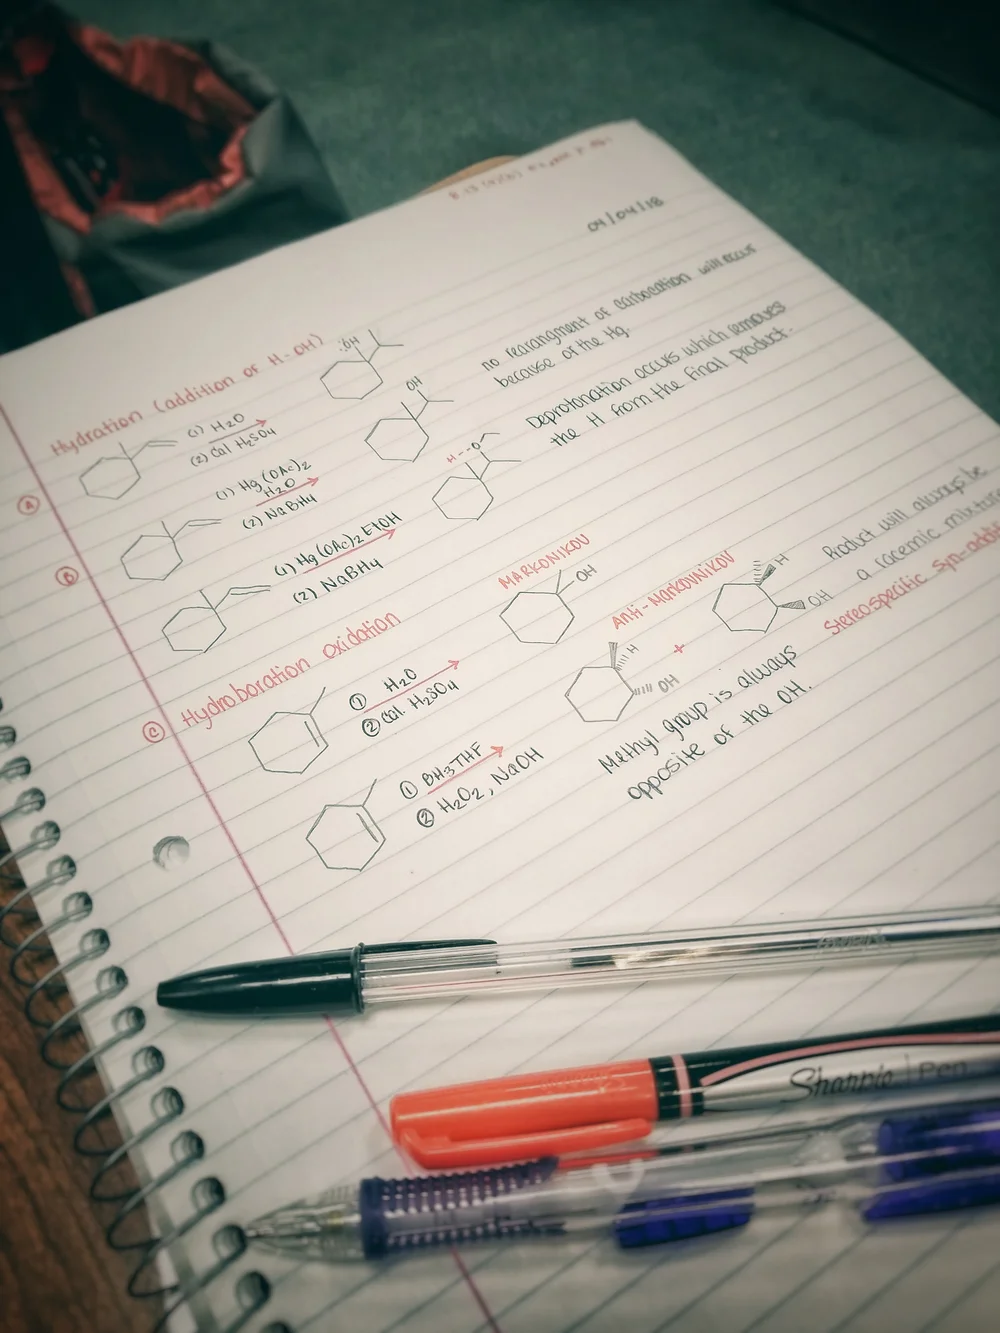 04/04/18
Hydration (addition of H-OH)
A
(1) H2O
(2) Cat H2SO4
:OH
no rearangment of carbocation will occur
because of the Hg.
B
(1) Hg(OAc)2
H2O
(2) NaBH4
OH
Deprotonation occurs which removes
the H from the final product.
(1) Hg(OAc)2 EtOH
(2) NaBH4
H--O
C Hydroboration oxidation
① H2O
② Cat. H2SO4
MARKONIKOV
OH
Anti-Markovnikov
① BH3THF
② H2O2, NaOH
H
OH
+
H
OH
Product will always be
a racemic mixture
Stereospecific Syn-
Methyl group is always
opposite of the OH.
Sharpie | Pen